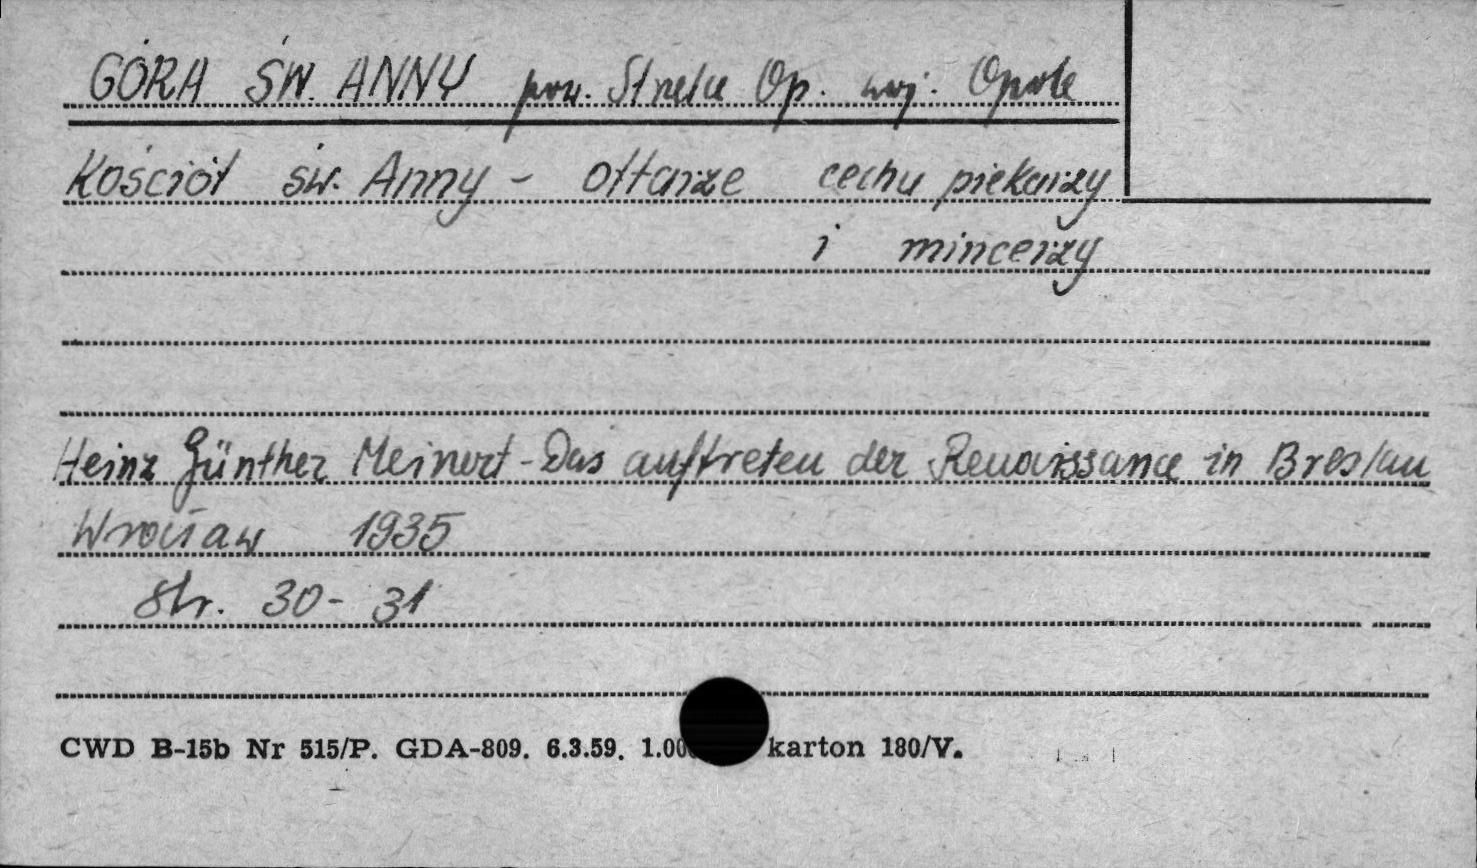 GÓRA ŚW. ANNY pow. Strzelce Op. woj. Opole
Kościół św. Anny - ołtarze cechu piekarzy
i mincerzy
Heinz Günther Meinert - Das auftreten der Renaissance in Breslau
Wrocław 1935
Str. 30-31
CWD B-15b Nr 515/P. GDA-809. 6.3.59. karton 180/V.